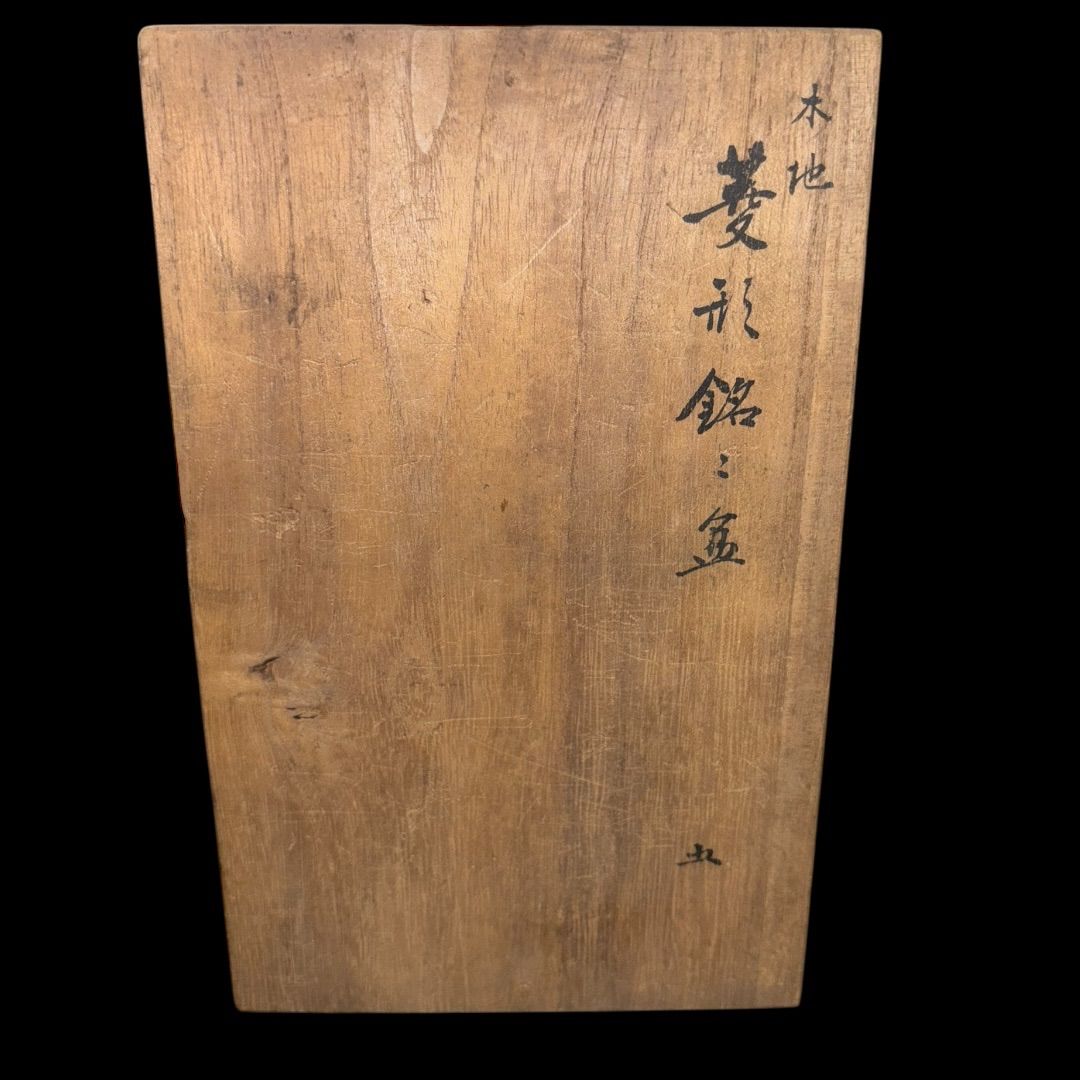 木地
菱形銘々盆
五